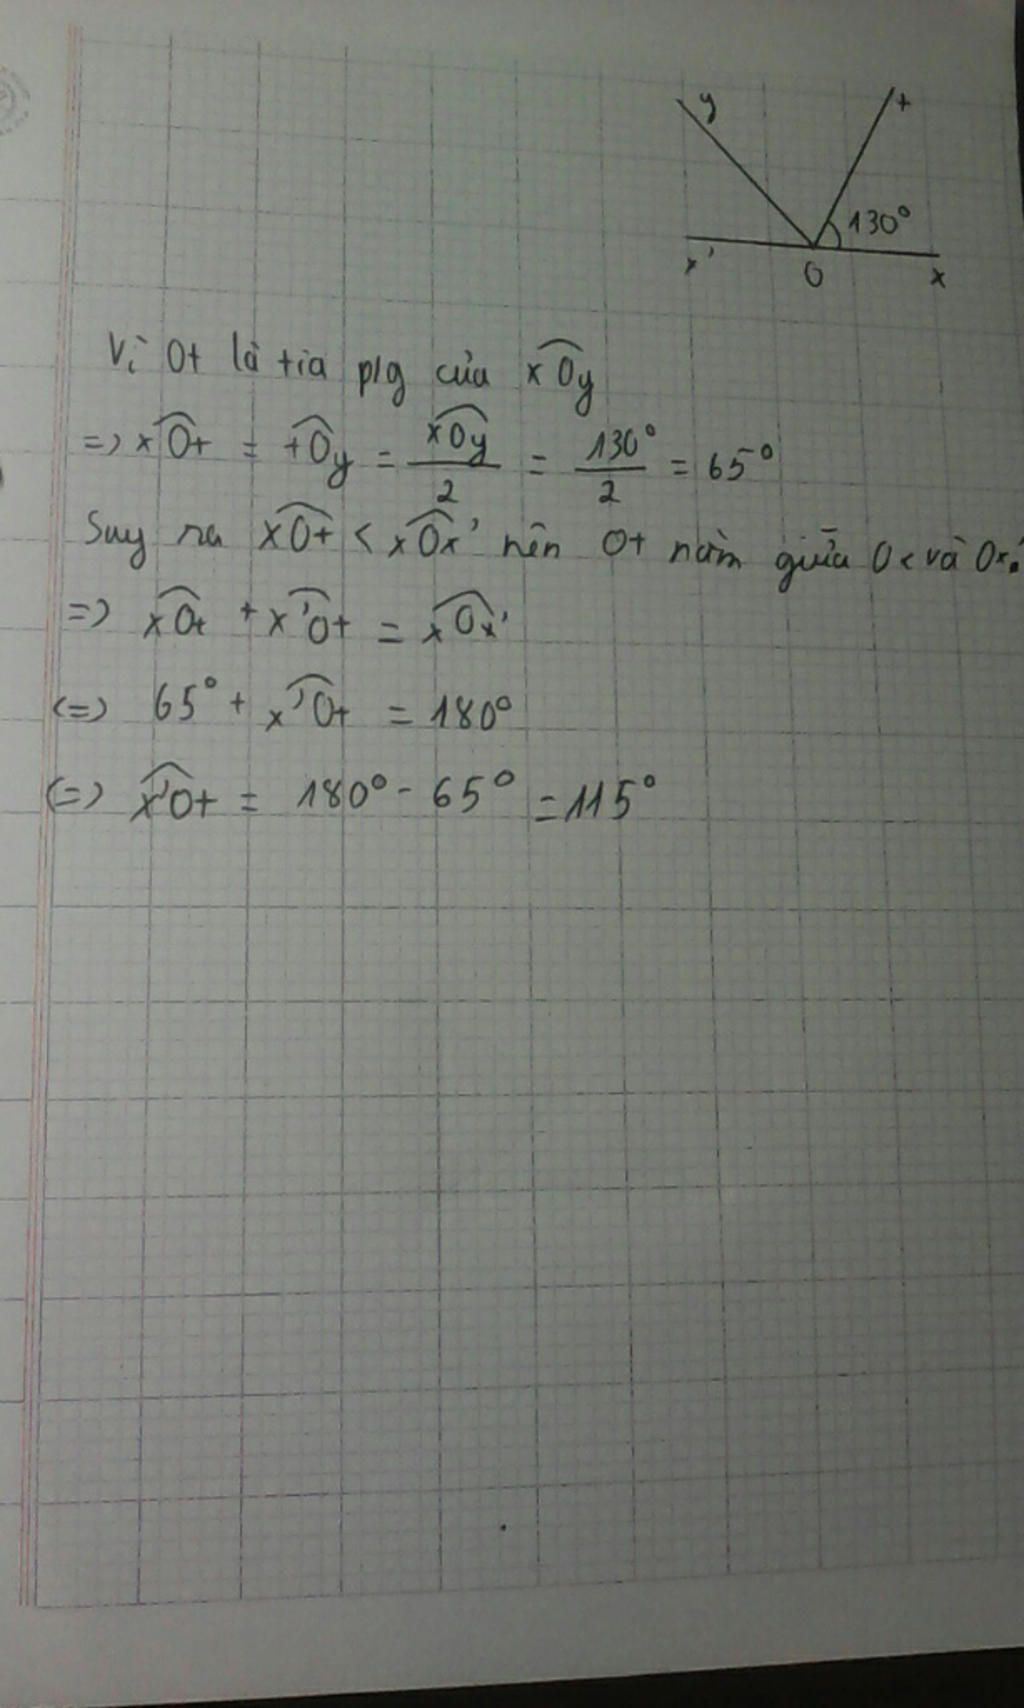 y t
130°
x' O x
Vì Ot là tia p/g của xOy
=> xOt = tOy = xOy/2 = 130°/2 = 65°
Suy ra xOt < xOx' nên Ot nằm giữa Ox và Ox'
=> xOt + x'Ot = xOx'
(=) 65° + x'Ot = 180°
(=) x'Ot = 180° - 65° = 115°